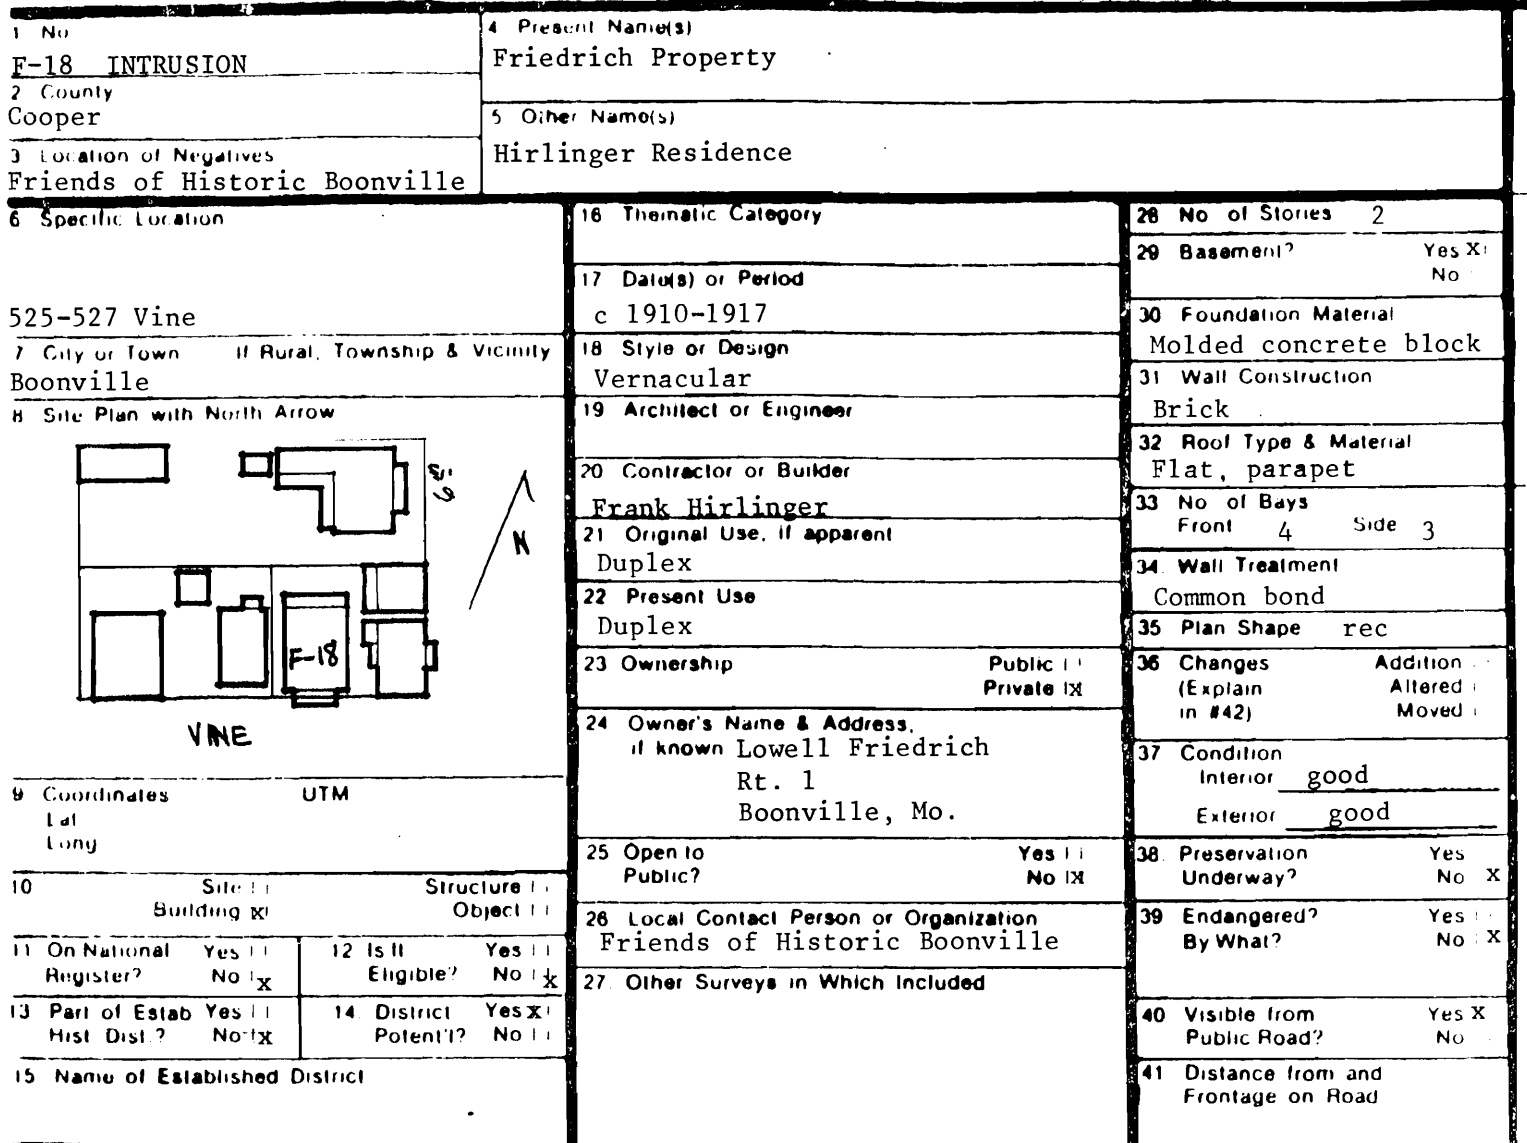 1 No
F-18 INTRUSION
2 County
Cooper
3 Location of Negatives
Friends of Historic Boonville
4 Present Name(s)
Friedrich Property
5 Other Name(s)
Hirlinger Residence
6 Specific Location
525-527 Vine
7 City or Town If Rural, Township & Vicinity
Boonville
8 Site Plan with North Arrow
N
F-18
VINE
9 Coordinates UTM
Lat
Long
10 Site
Structure
Building X
Object
11 On National Register? Yes
No X
12 Is It Eligible? Yes
No X
13 Part of Estab Hist. Dist.? Yes
No X
14 District Potent'l? Yes X
No
15 Name of Established District
16 Thematic Category
17 Date(s) or Period
c 1910-1917
18 Style or Design
Vernacular
19 Architect or Engineer
20 Contractor or Builder
Frank Hirlinger
21 Original Use, if apparent
Duplex
22 Present Use
Duplex
23 Ownership Public
Private X
24 Owner's Name & Address,
if known Lowell Friedrich
Rt. 1
Boonville, Mo.
25 Open to Yes
Public? No X
26 Local Contact Person or Organization
Friends of Historic Boonville
27. Other Surveys in Which Included
28 No of Stories 2
29 Basement? Yes X
No
30 Foundation Material
Molded concrete block
31 Wall Construction
Brick
32 Roof Type & Material
Flat, parapet
33 No of Bays
Front 4 Side 3
34. Wall Treatment
Common bond
35 Plan Shape rec
36 Changes Addition
(Explain Altered
in #42) Moved
37 Condition
Interior good
Exterior good
38. Preservation Yes
Underway? No X
39 Endangered? Yes
By What? No X
40 Visible from Yes X
Public Road? No
41 Distance from and
Frontage on Road